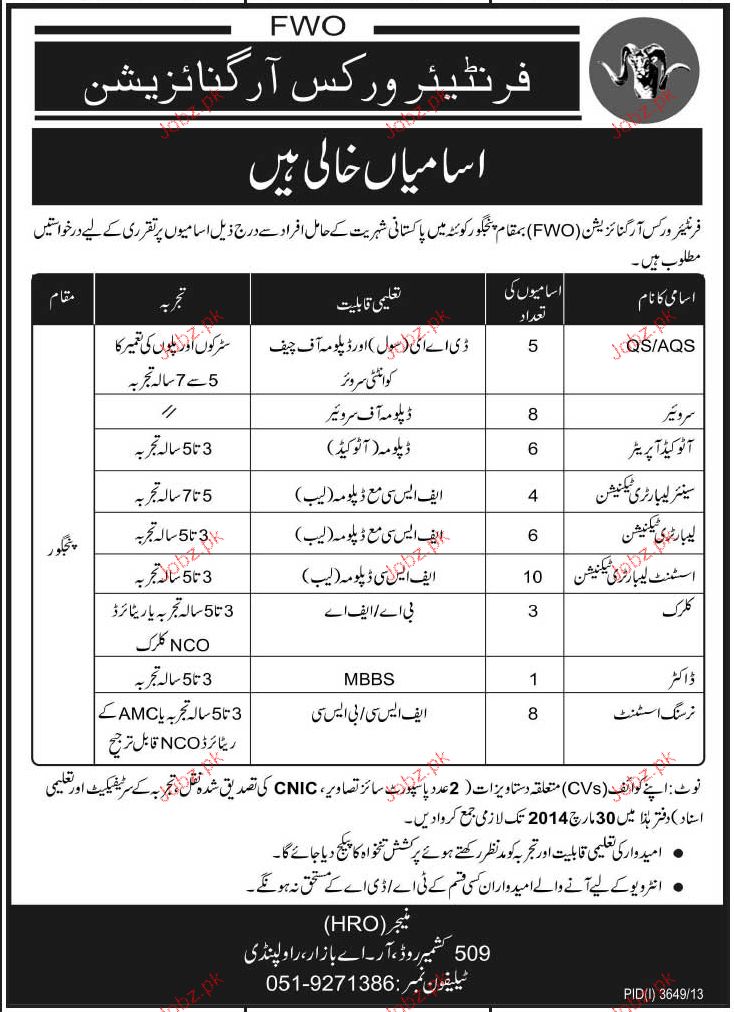 FWO
فرنٹیئر ورکس آرگنائزیشن
اسامیاں خالی ہیں
فرنٹیئر ورکس آرگنائزیشن (FWO) بمقام پنجگور کوئٹہ میں پاکستانی شہریت کے حامل افراد سے درج ذیل اسامیوں پر تقرری کے لیے درخواستیں
مطلوب ہیں۔
اسامی کا نام | اسامیوں کی تعداد | تعلیمی قابلیت | تجربہ | مقام
QS/AQS | 5 | ڈی اے ای (سول) اور ڈپلومہ آف چیف کوانٹٹی سروئر | سڑکوں اور پلوں کی تعمیر کا 5 سے 7 سالہ تجربہ | پنجگور
سروئیر | 8 | ڈپلومہ آف سروئیر | //
آٹو کیڈ آپریٹر | 6 | ڈپلومہ (آٹو کیڈ) | 3 تا 5 سالہ تجربہ
سینئر لیبارٹری ٹیکنیشن | 4 | ایف ایس سی مع ڈپلومہ (لیب) | 5 تا 7 سالہ تجربہ
لیبارٹری ٹیکنیشن | 6 | ایف ایس سی مع ڈپلومہ (لیب) | 3 تا 5 سالہ تجربہ
اسسٹنٹ لیبارٹری ٹیکنیشن | 10 | ایف ایس سی ڈپلومہ (لیب) | 3 تا 5 سالہ تجربہ
کلرک | 3 | بی اے/ایف اے | 3 تا 5 سالہ تجربہ یا ریٹائرڈ NCO کلرک
ڈاکٹر | 1 | MBBS | 3 تا 5 سالہ تجربہ
نرسنگ اسسٹنٹ | 8 | ایف ایس سی/بی ایس سی | 3 تا 5 سالہ تجربہ یا AMC کے ریٹائرڈ NCO قابل ترجیح
نوٹ: اپنے کوائف (CVs) متعلقہ دستاویزات (2 عدد پاسپورٹ سائز تصاویر، CNIC کی تصدیق شدہ نقل، تجربہ کے سرٹیفکیٹ اور تعلیمی
اسناد) دفتر ہٰذا میں 30 مارچ 2014 تک لازمی جمع کروا دیں۔
● امیدوار کی تعلیمی قابلیت اور تجربہ کو مدنظر رکھتے ہوئے پرکشش تنخواہ کا پیکج دیا جائے گا۔
● انٹرویو کے لیے آنے والے امیدواران کسی قسم کے ٹی اے/ڈی اے کے مستحق نہ ہونگے۔
منیجر (HRO)
509 کشمیر روڈ، آر۔اے بازار، راولپنڈی
ٹیلیفون نمبر: 051-9271386
PID(I) 3649/13
Jabz.pk